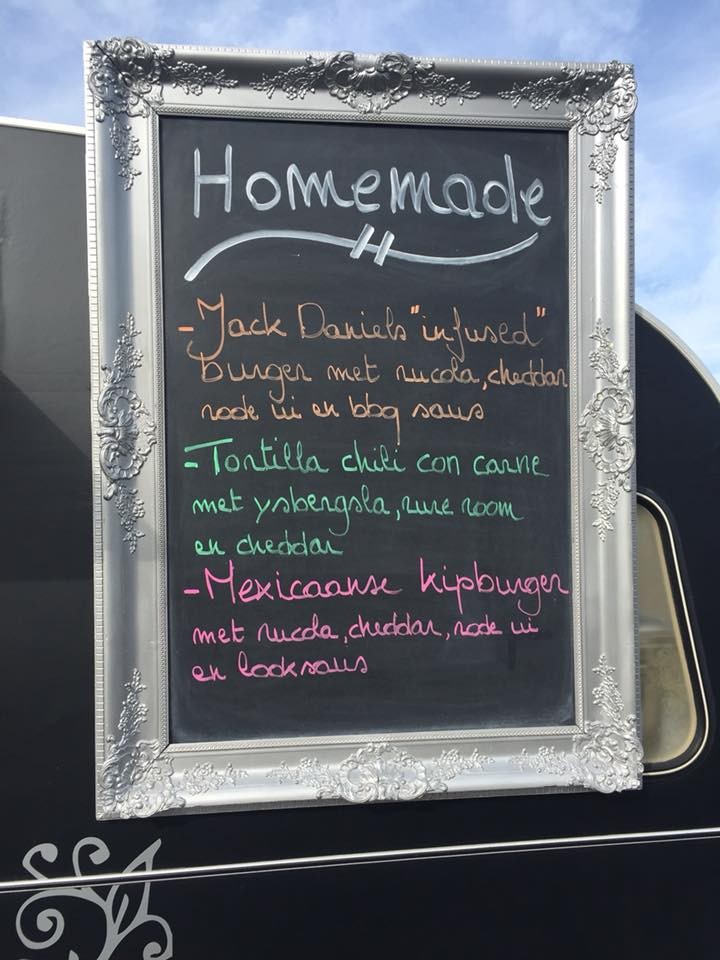 Homemade
- Jack Daniels "infused"
burger met rucola, cheddar
rode ui en bbq saus
- Tortilla chili con carne
met ysbergsla, zure room
en cheddar
- Mexicaanse kipburger
met rucola, cheddar, rode ui
en looksaus